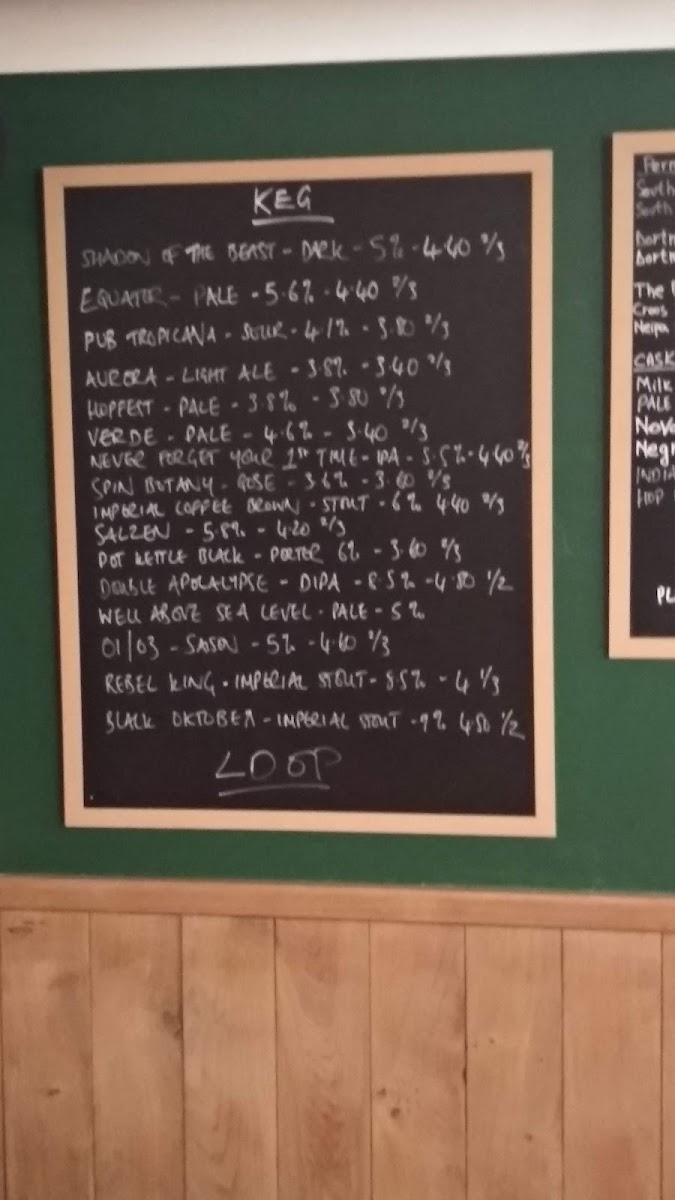 KEG
SHADOW OF THE BEAST - DARK - 5% - 4.40 2/3
EQUATOR - PALE - 5.6% - 4.40 2/3
PUB TROPICANA - SOUR - 4.1% - 3.80 2/3
AURORA - LIGHT ALE - 3.8% - 3.40 2/3
HOPFEST - PALE - 3.8% - 3.80 2/3
VERDE - PALE - 4.6% - 3.40 2/3
NEVER FORGET YOUR 1ST TIME - IPA - 5.5% - 4.40 2/3
SPIN BOTANY - GOSE - 3.6% - 3.60 2/3
IMPERIAL COFFEE BROWN - STOUT - 6% 4.40 2/3
SALZEN - 5.8% - 4.20 2/3
POT KETTLE BLACK - PORTER 6% - 3.60 2/3
DOUBLE APOCALYPSE - DIPA - 8.5% - 4.80 1/2
WELL ABOVE SEA LEVEL - PALE - 5%
01/03 - SAISON - 5% - 4.60 2/3
REBEL KING - IMPERIAL STOUT - 8.5% - 4 1/3
BLACK OKTOBER - IMPERIAL STOUT - 9% 4.50 1/2
LOOP
South
South
Dortm
Dortm
The
Cross
Neipa
CASK
Milk
PALE
Nove
Negr
INDIA
HOP
PL